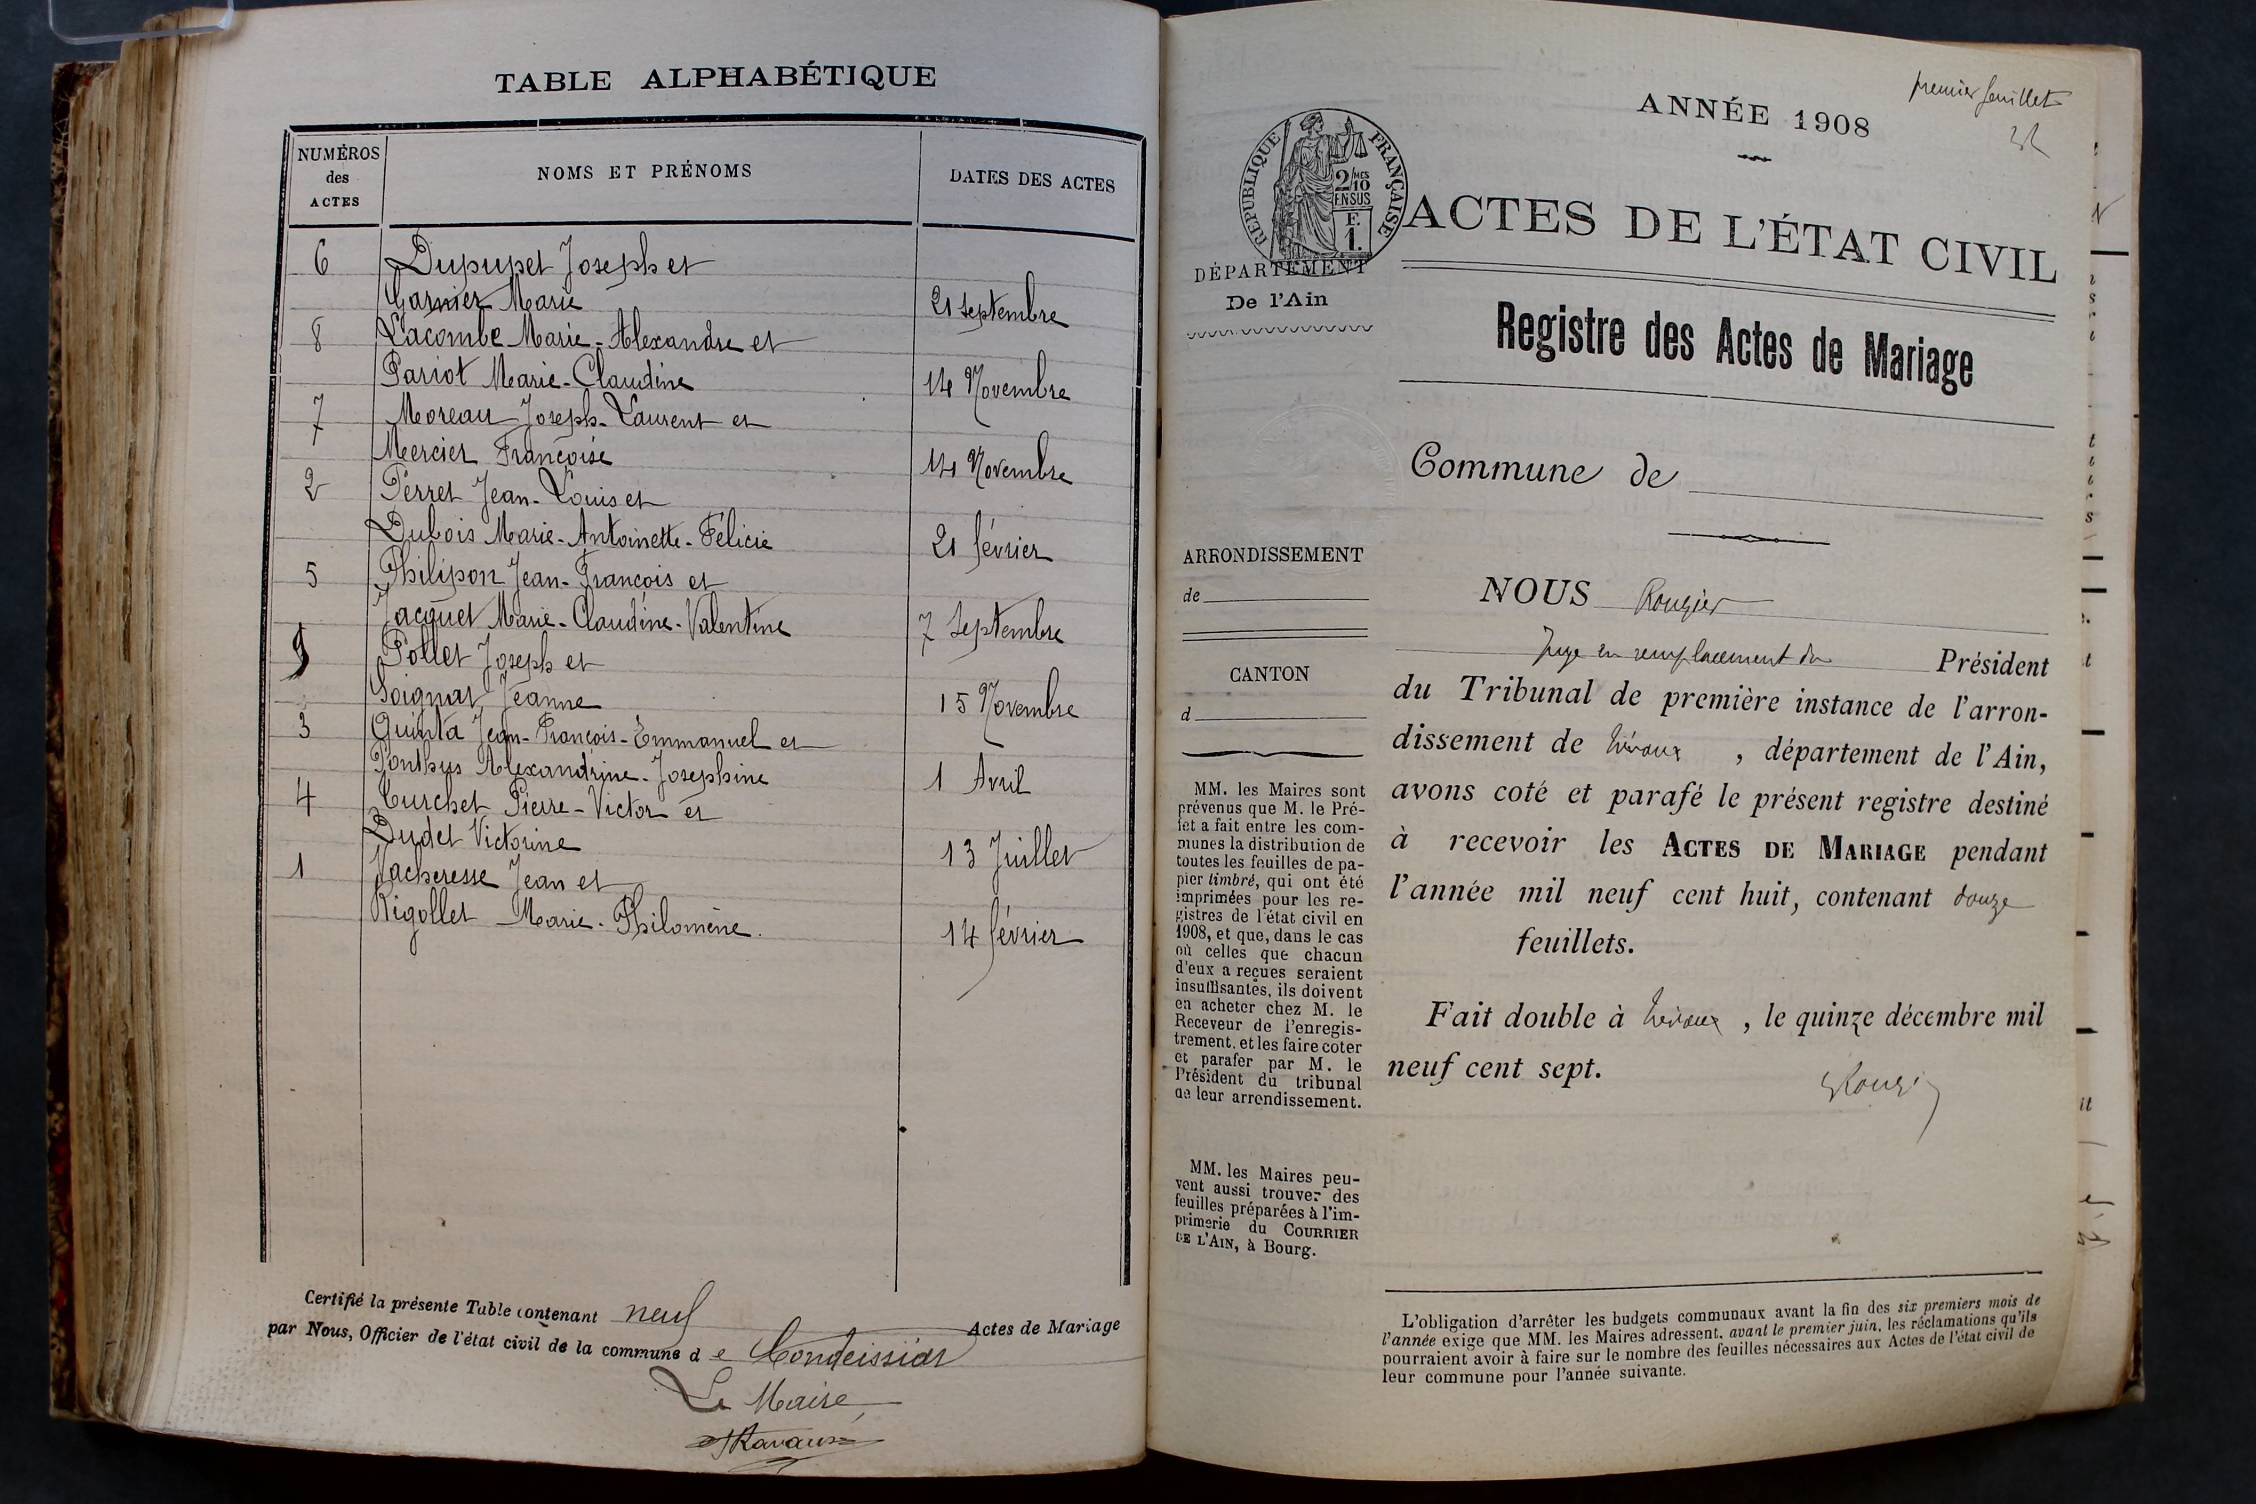 TABLE ALPHABÉTIQUE
NUMÉROS des ACTES
NOMS ET PRÉNOMS
DATES DES ACTES
6 Dupupet Joseph et
Garnier Marie 21 septembre
8 Lacombe Marie-Alexandre et
Pariot Marie-Claudine 14 Novembre
7 Moreau Joseph-Laurent et
Mercier Françoise 14 Novembre
2 Perret Jean-Louis et
Dubois Marie-Antoinette-Félicie 21 février
5 Philipon Jean-François et
Jacquet Marie-Claudine-Valentine 7 Septembre
9 Pollet Joseph et
Soignat Jeanne 15 Novembre
3 Quinta Jean-François-Emmanuel et
Ponthus Alexandrine-Josephine 1 Avril
4 Curchet Pierre-Victor et
Dudet Victorine 13 Juillet
1 Vacheresse Jean et
Rigollet Marie-Philomène. 14 février
Certifié la présente Table contenant neuf Actes de Mariage
par Nous, Officier de l'état civil de la commune d e Condeissiat
Le Maire
premier feuillet
ANNÉE 1908
RÉPUBLIQUE FRANÇAISE
2/MES
10
EN SUS
F.
1.
ACTES DE L'ÉTAT CIVIL
DÉPARTEMENT
De l'Ain
Registre des Actes de Mariage
Commune de
ARRONDISSEMENT
de
CANTON
d
MM. les Maires sont
prévenus que M. le Pré-
fet a fait entre les com-
munes la distribution de
toutes les feuilles de pa-
pier timbré, qui ont été
imprimées pour les re-
gistres de l'état civil en
1908, et que, dans le cas
où celles que chacun
d'eux a reçues seraient
insuffisantes, ils doivent
en acheter chez M. le
Receveur de l'enregis-
trement, et les faire coter
et parafer par M. le
Président du tribunal
de leur arrondissement.
MM. les Maires peu-
vent aussi trouver des
feuilles préparées à l'im-
primerie du COURRIER
DE L'AIN, à Bourg.
NOUS Rougier
Juge en remplacement du Président
du Tribunal de première instance de l'arron-
dissement de Trévoux, département de l'Ain,
avons coté et parafé le présent registre destiné
à recevoir les ACTES DE MARIAGE pendant
l'année mil neuf cent huit, contenant douze
feuillets.
Fait double à Trévoux, le quinze décembre mil
neuf cent sept.
Rougier
L'obligation d'arrêter les budgets communaux avant la fin des six premiers mois de
l'année exige que MM. les Maires adressent, avant le premier juin, les réclamations qu'ils
pourraient avoir à faire sur le nombre des feuilles nécessaires aux Actes de l'état civil de
leur commune pour l'année suivante.